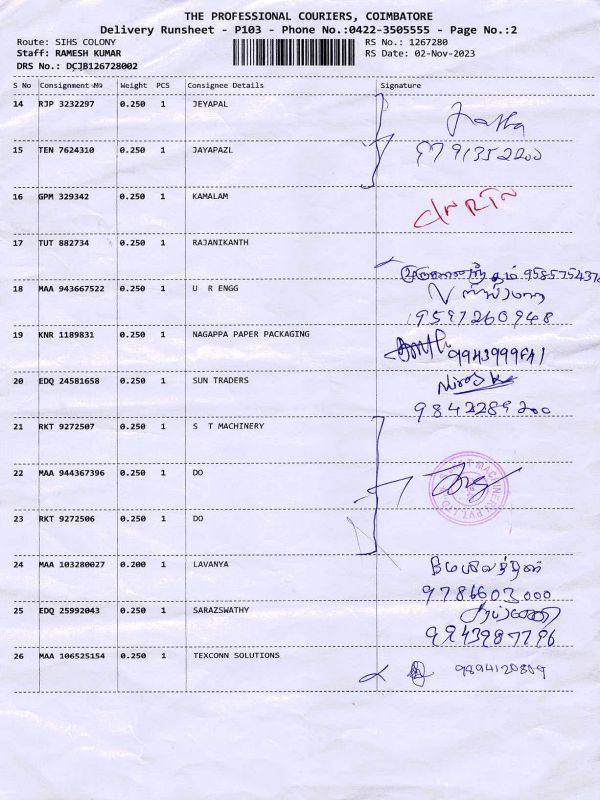 THE PROFESSIONAL COURIERS, COIMBATORE
Delivery Runsheet - P103 - Phone No.:0422-3505555 - Page No.:2
Route: SIHS COLONY RS No.: 1267280
Staff: RAMESH KUMAR RS Date: 02-Nov-2023
DRS No.: DCJB126728002
S No Consignment No Weight PCS Consignee Details Signature
14 RJP 3232297 0.250 1 JEYAPAL
15 TEN 7624310 0.250 1 JAYAPAZL
9791352200
16 GPM 329342 0.250 1 KAMALAM
17 TUT 882734 0.250 1 RAJANIKANTH
18 MAA 943667522 0.250 1 U R ENGG
9597260948
19 KNR 1189831 0.250 1 NAGAPPA PAPER PACKAGING
20 EDQ 24581658 0.250 1 SUN TRADERS
9842289200
21 RKT 9272507 0.250 1 S T MACHINERY
22 MAA 944367396 0.250 1 DO
23 RKT 9272506 0.250 1 DO
24 MAA 103280027 0.200 1 LAVANYA
9786603000
25 EDQ 25992043 0.250 1 SARAZSWATHY
9943987796
26 MAA 106525154 0.250 1 TEXCONN SOLUTIONS
9894120809